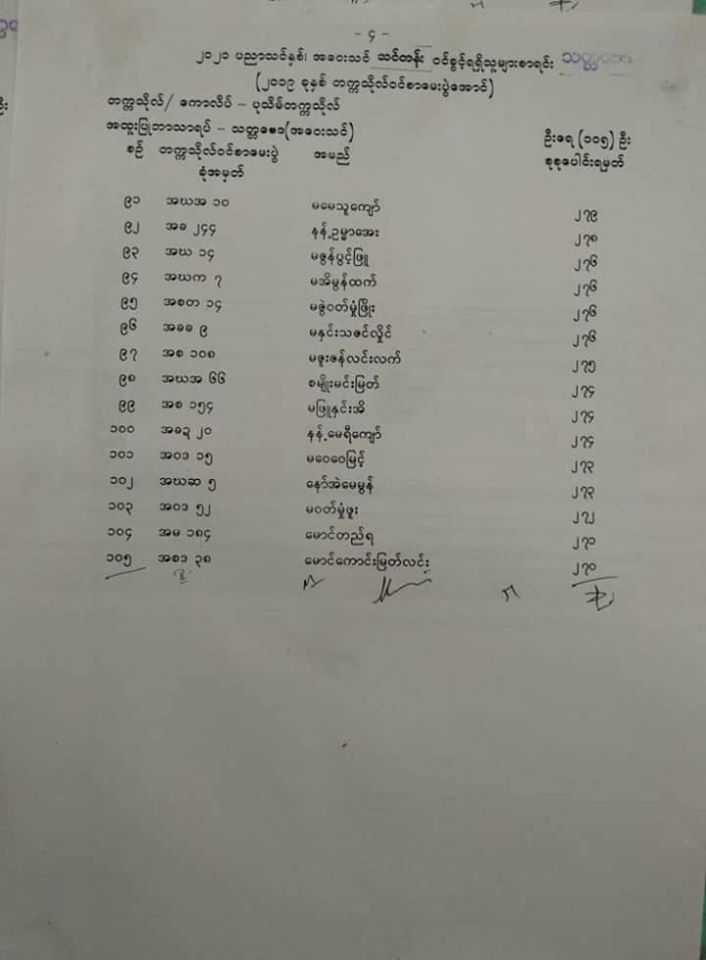 - ၄ -
၂၀၂၀ ပညာသင်နှစ်၊ အဝေးသင် သင်တန်း ဝင်ခွင့်ရရှိသူများစာရင်း သတ္တဗေဒ
(၂၀၁၉ ခုနှစ် တက္ကသိုလ်ဝင်စာမေးပွဲအောင်)
တက္ကသိုလ်/ ကောလိပ် - ပုသိမ်တက္ကသိုလ်
အထူးပြုဘာသာရပ် - သတ္တဗေဒ(အဝေးသင်)
ဦးရေ (၁၀၅) ဦး
စဉ် တက္ကသိုလ်ဝင်စာမေးပွဲ အမည် စုစုပေါင်းရမှတ်
ခုံအမှတ်
၉၁ အဃအ ၁၀ မမေသူကျော် ၂၇၉
၉၂ အခ ၂၄၄ နန့်ဥမ္မာအေး ၂၇၈
၉၃ အဃ ၁၄ မဇွန်ပွင့်ဖြူ ၂၇၆
၉၄ အဃက ၇ မအိမွန်ထက် ၂၇၆
၉၅ အစတ ၁၄ မခွဲဝတ်မှုံဖြိုး ၂၇၆
၉၆ အခခ ၉ မနှင်းသဇင်လှိုင် ၂၇၆
၉၇ အစ ၁၀၈ မဇူးဇန်လင်းလက် ၂၇၅
၉၈ အဃအ ၆၆ စမျိုးမင်းမြတ် ၂၇၄
၉၉ အစ ၁၅၄ မဖြူနှင်းအိ ၂၇၄
၁၀၀ အခဍ ၂၀ နန့်မေရီကျော် ၂၇၄
၁၀၁ အဝဒ ၁၅ မဝေဝေမြင့် ၂၇၃
၁၀၂ အဃဆ ၅ နော်အဲမေမွန် ၂၇၃
၁၀၃ အဝဒ ၅၂ မဝတ်မှုံဖူး ၂၇၂
၁၀၄ အမ ၁၈၄ မောင်တည်ရ ၂၇၀
၁၀၅ အစဒ ၃၈ မောင်ကောင်းမြတ်လင်း ၂၇၀